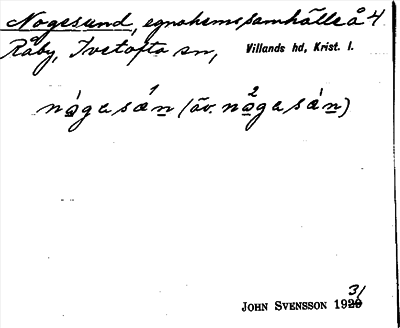 Nogesund, egnahemssamhälle å 4
Råby, Ivetofta sn, Villands hd, Krist. l.
nǫ̀gasán (äv. nǫ²gasàn)
31
JOHN SVENSSON 1929